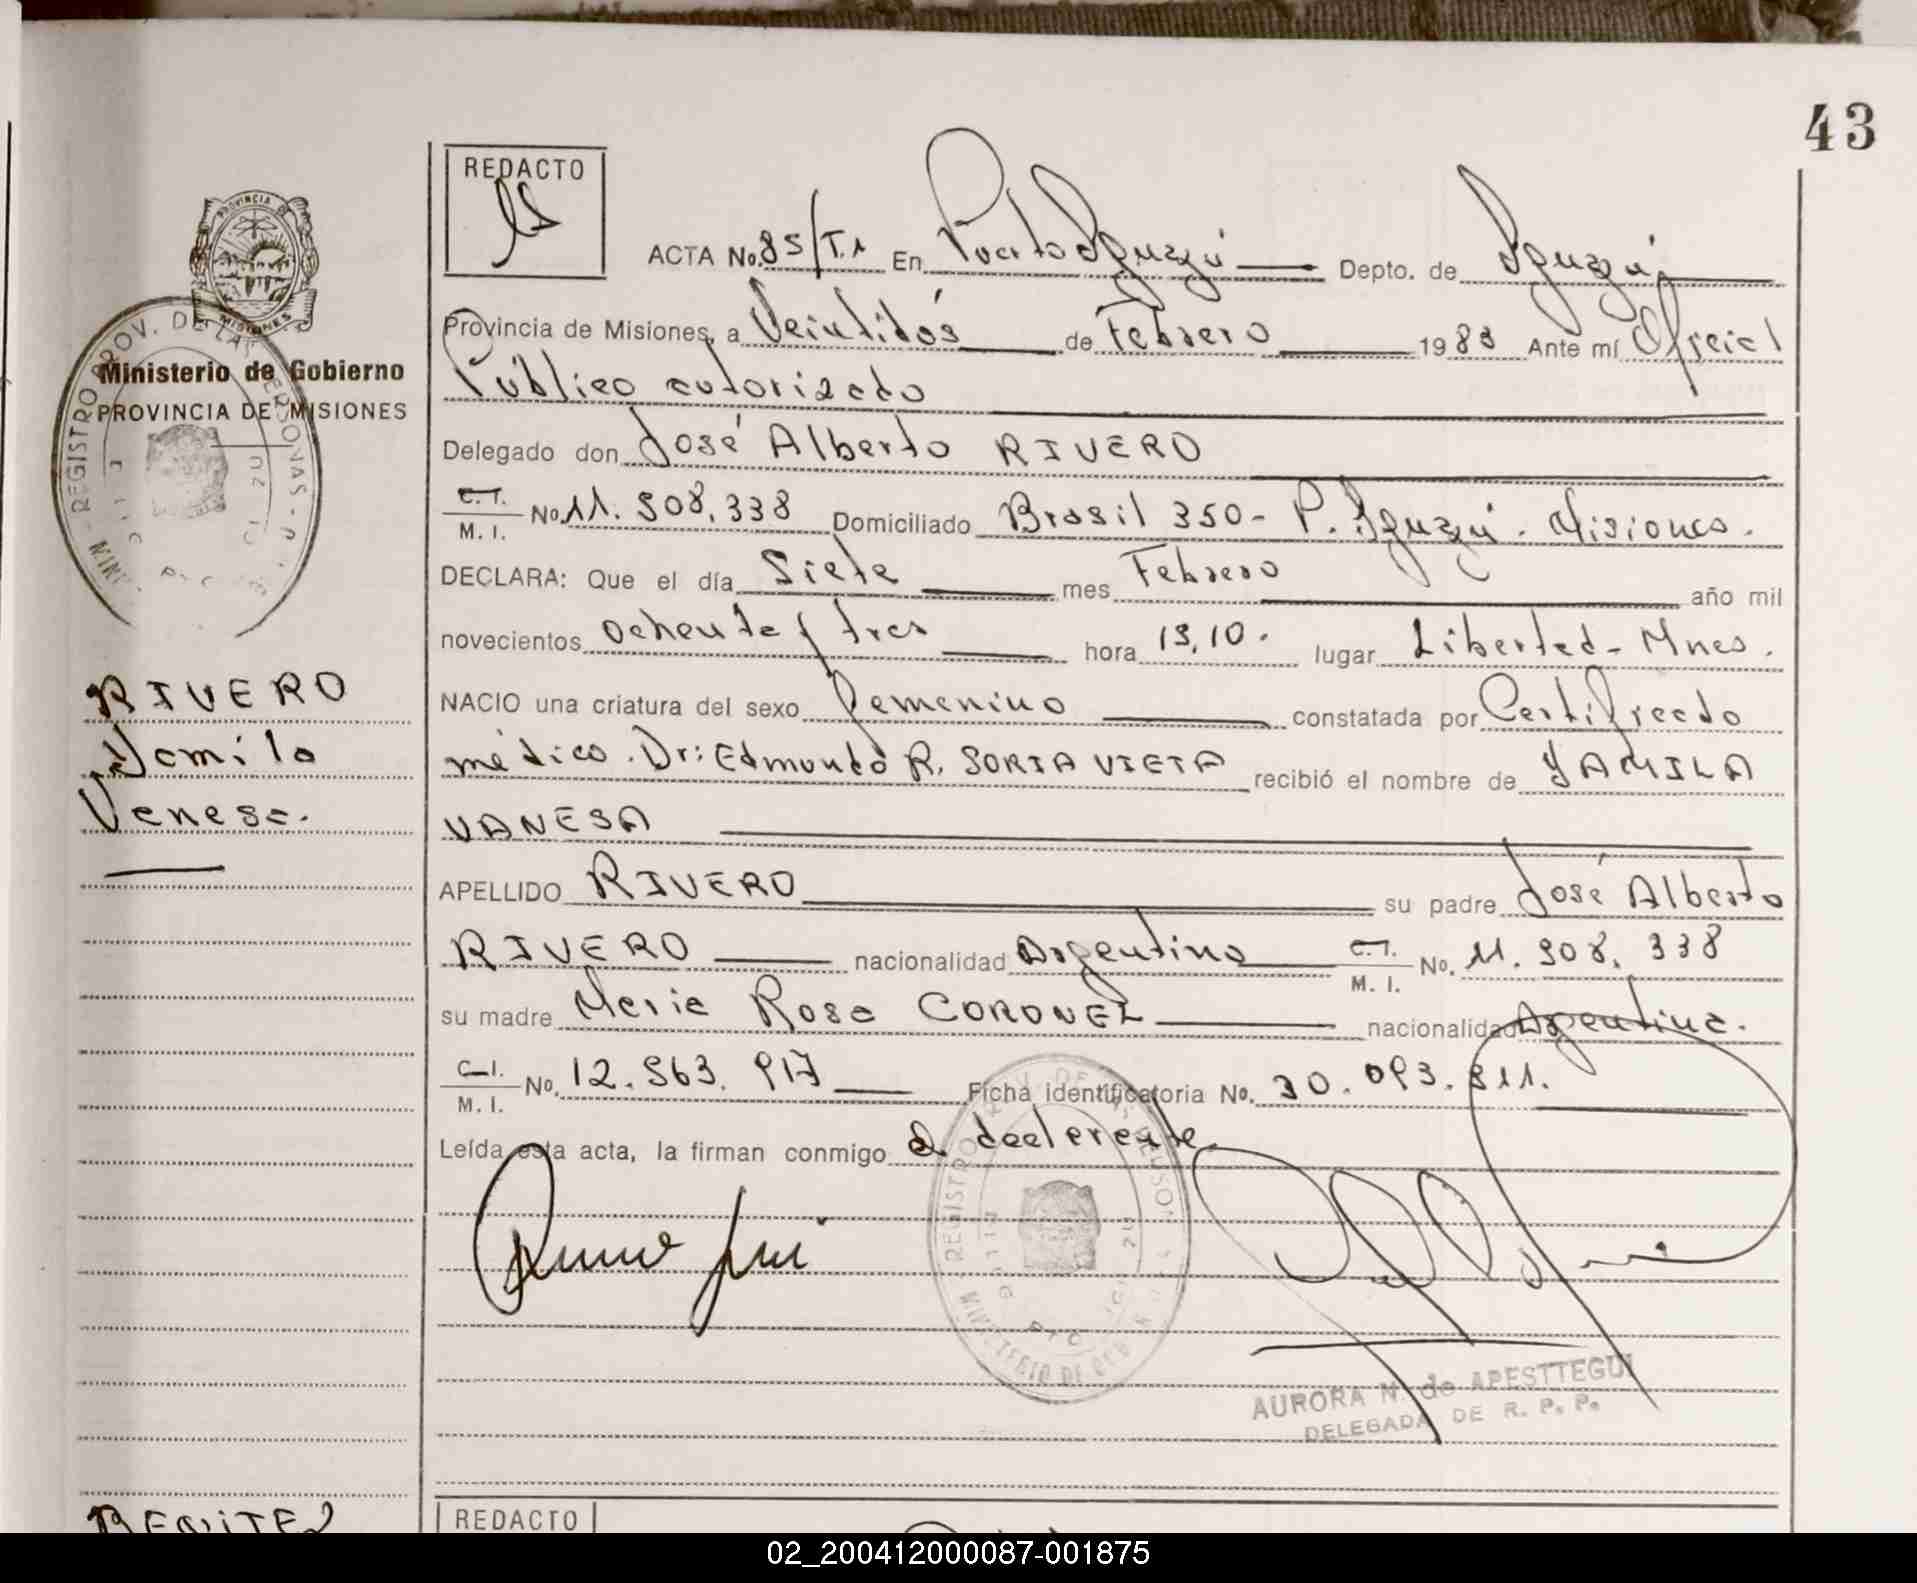 43
REDACTO
PROVINCIA DE
MISIONES
ACTA No. 85/T.1 En Puerto Iguazú Depto. de Iguazú
Provincia de Misiones, a Veintidós de Febrero 1983 Ante mí Oficial
Público autorizado
Ministerio de Gobierno
PROVINCIA DE MISIONES
Delegado don José Alberto RIVERO
C.I. M. I. No. 11.508.338 Domiciliado Brasil 350- P. Iguazú. Misiones.
DECLARA: Que el día Siete mes Febrero año mil
novecientos ochenta y tres hora 15,10. lugar Libertad- Mnes.
RIVERO
Yamila
Vanesa.
NACIO una criatura del sexo femenino constatada por Certificado
médico. Dr: Edmundo R. SORIA VIETA recibió el nombre de YAMILA
VANESA
APELLIDO RIVERO su padre José Alberto
RIVERO nacionalidad Argentino C.I. M. I. No. 11.508.338
su madre Maria Rosa CORONEL nacionalidad Argentina.
C.I. M. I. No. 12.563.917 Ficha identificatoria No. 30.093.811.
Leída esta acta, la firman conmigo el declarante.
AURORA N. de APESTTEGUI
DELEGADA DE R. P. P.
BENITEZ
REDACTO
02_200412000087-001875